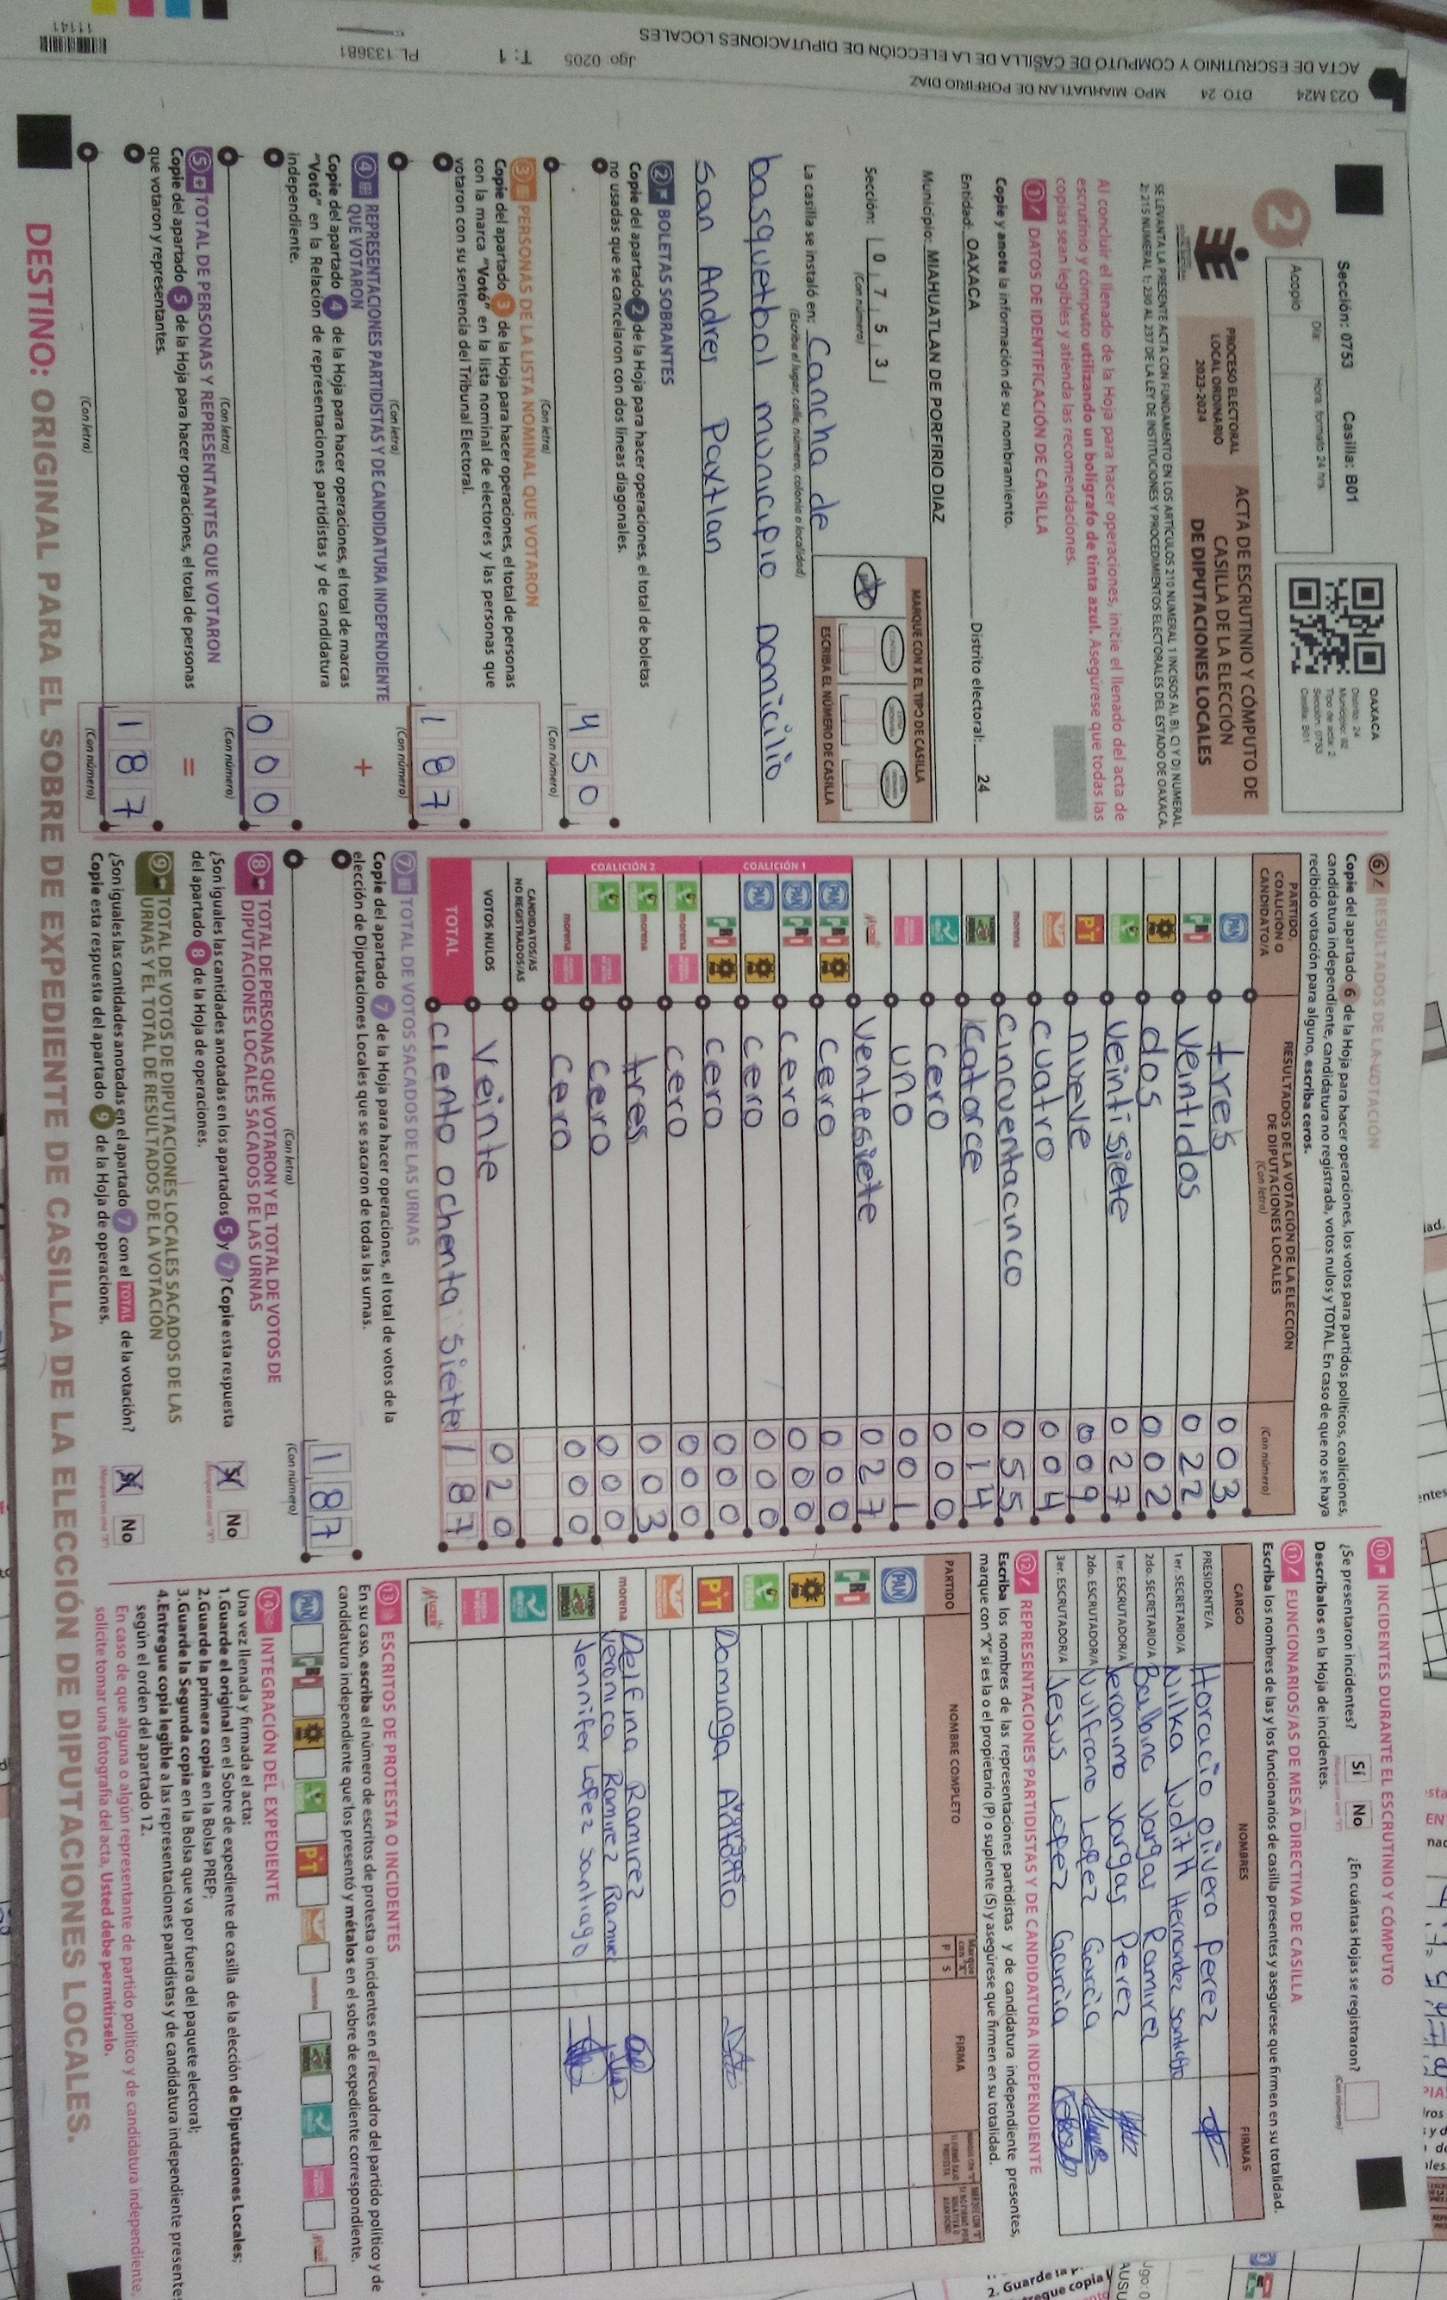 O23 M24 DTO 24 MPO MIAHUATLAN DE PORFIRIO DIAZ
ACTA DE ESCRUTINIO Y CÓMPUTO DE CASILLA DE LA ELECCIÓN DE DIPUTACIONES LOCALES
Jgo: 0205 T: 1 PL 133681
11141
Sección: 0753 Casilla: B01
Día: Hora: formato 24 hrs.
Acopio
2
OAXACA
Distrito: 24
Municipio: 92
Tipo de acta: 2
Sección: 0753
Casilla: B01
PROCESO ELECTORAL
LOCAL ORDINARIO
2023-2024
ACTA DE ESCRUTINIO Y CÓMPUTO DE
CASILLA DE LA ELECCIÓN
DE DIPUTACIONES LOCALES
SE LEVANTA LA PRESENTE ACTA CON FUNDAMENTO EN LOS ARTÍCULOS 210 NUMERAL 1 INCISOS A), B), C) Y D) NUMERAL
2; 215 NUMERAL 1; 230 AL 237 DE LA LEY DE INSTITUCIONES Y PROCEDIMIENTOS ELECTORALES DEL ESTADO DE OAXACA.
Al concluir el llenado de la Hoja para hacer operaciones, inicie el llenado del acta de
escrutinio y cómputo utilizando un bolígrafo de tinta azul. Asegúrese que todas las
copias sean legibles y atienda las recomendaciones.
1 DATOS DE IDENTIFICACIÓN DE CASILLA
Copie y anote la información de su nombramiento.
Entidad: OAXACA Distrito electoral: 24
Municipio: MIAHUATLAN DE PORFIRIO DIAZ
Sección: 0 7 5 3
(Con número)
MARQUE CON X EL TIPO DE CASILLA
ESCRIBA EL NÚMERO DE CASILLA
La casilla se instaló en: Cancha de
(Escriba el lugar, calle, número, colonia o localidad)
basquetbol municipio Domicilio
San Andres Paxtlan
2 BOLETAS SOBRANTES
Copie del apartado 2 de la Hoja para hacer operaciones, el total de boletas
no usadas que se cancelaron con dos líneas diagonales.
4 5 0
(Con letra) (Con número)
3 PERSONAS DE LA LISTA NOMINAL QUE VOTARON
Copie del apartado 3 de la Hoja para hacer operaciones, el total de personas
con la marca "Votó" en la lista nominal de electores y las personas que
votaron con su sentencia del Tribunal Electoral.
1 8 7
(Con letra) (Con número)
4 REPRESENTACIONES PARTIDISTAS Y DE CANDIDATURA INDEPENDIENTE
QUE VOTARON
+
Copie del apartado 4 de la Hoja para hacer operaciones, el total de marcas
"Votó" en la Relación de representaciones partidistas y de candidatura
independiente.
0 0 0
(Con letra) (Con número)
5 TOTAL DE PERSONAS Y REPRESENTANTES QUE VOTARON
=
Copie del apartado 5 de la Hoja para hacer operaciones, el total de personas
que votaron y representantes.
1 8 7
(Con letra) (Con número)
6 RESULTADOS DE LA VOTACIÓN
Copie del apartado 6 de la Hoja para hacer operaciones, los votos para partidos políticos, coaliciones,
candidatura independiente, candidatura no registrada, votos nulos y TOTAL. En caso de que no se haya
recibido votación para alguno, escriba ceros.
PARTIDO, COALICIÓN O CANDIDATO/A
RESULTADOS DE LA VOTACIÓN DE LA ELECCIÓN DE DIPUTACIONES LOCALES
(Con letra) (Con número)
PAN tres 0 0 3
PRI Veintidos 0 2 2
dos 0 0 2
Veinti siete 0 2 7
PT nueve 0 0 9
cuatro 0 0 4
morena cincuentacinco 0 5 5
catorce 0 1 4
cero 0 0 0
uno 0 0 1
Ventesiete 0 2 7
COALICIÓN 1
PAN PRI cero 0 0 0
PAN PRI cero 0 0 0
PAN cero 0 0 0
PRI cero 0 0 0
COALICIÓN 2
morena cero 0 0 0
morena tres 0 0 3
cero 0 0 0
morena cero 0 0 0
CANDIDATOS/AS
NO REGISTRADOS/AS
VOTOS NULOS Veinte 0 2 0
TOTAL Ciento ochenta siete 1 8 7
7 TOTAL DE VOTOS SACADOS DE LAS URNAS
Copie del apartado 7 de la Hoja para hacer operaciones, el total de votos de la
elección de Diputaciones Locales que se sacaron de todas las urnas.
1 8 7
(Con letra) (Con número)
8 TOTAL DE PERSONAS QUE VOTARON Y EL TOTAL DE VOTOS DE
DIPUTACIONES LOCALES SACADOS DE LAS URNAS
¿Son iguales las cantidades anotadas en los apartados 5 y 7? Copie esta respuesta
del apartado 8 de la Hoja de operaciones.
Sí No
9 TOTAL DE VOTOS DE DIPUTACIONES LOCALES SACADOS DE LAS
URNAS Y EL TOTAL DE RESULTADOS DE LA VOTACIÓN
¿Son iguales las cantidades anotadas en el apartado 7 con el TOTAL de la votación?
Copie esta respuesta del apartado 9 de la Hoja de operaciones.
Sí No
10 INCIDENTES DURANTE EL ESCRUTINIO Y CÓMPUTO
¿Se presentaron incidentes? Sí No ¿En cuántas Hojas se registraron?
(Con número)
Descríbalos en la Hoja de incidentes.
11 FUNCIONARIOS/AS DE MESA DIRECTIVA DE CASILLA
Escriba los nombres de las y los funcionarios de casilla presentes y asegúrese que firmen en su totalidad.
CARGO NOMBRES FIRMAS
PRESIDENTE/A Horacio Olivera Perez
1er. SECRETARIO/A Nilka Judith Hernandez Santiago
2do. SECRETARIO/A Balbina Vargas Ramirez
1er. ESCRUTADOR/A Veronimo Vargas Perez
2do. ESCRUTADOR/A Vulfrano Lopez Garcia
3er. ESCRUTADOR/A Jesus Lopez Garcia
12 REPRESENTACIONES PARTIDISTAS Y DE CANDIDATURA INDEPENDIENTE
Escriba los nombres de las representaciones partidistas y de candidatura independiente presentes,
marque con "X" si es la o el propietario (P) o suplente (S) y asegúrese que firmen en su totalidad.
PARTIDO NOMBRE COMPLETO Marque con "X" P S FIRMA
PAN
PRI
PT Dominga Antonio
morena Delfina Ramirez
Veronica Ramirez Ramirez
Jennifer Lopez Santiago
13 ESCRITOS DE PROTESTA O INCIDENTES
En su caso, escriba el número de escritos de protesta o incidentes en el recuadro del partido político y de
candidatura independiente que los presentó y métalos en el sobre de expediente correspondiente.
PAN PRI PT morena
14 INTEGRACIÓN DEL EXPEDIENTE
Una vez llenada y firmada el acta:
1.Guarde el original en el Sobre de expediente de casilla de la elección de Diputaciones Locales;
2.Guarde la primera copia en la Bolsa PREP;
3.Guarde la Segunda copia en la Bolsa que va por fuera del paquete electoral;
4.Entregue copia legible a las representaciones partidistas y de candidatura independiente presentes
según el orden del apartado 12.
En caso de que alguna o algún representante de partido político y de candidatura independiente,
solicite tomar una fotografía del acta, Usted debe permitírselo.
DESTINO: ORIGINAL PARA EL SOBRE DE EXPEDIENTE DE CASILLA DE LA ELECCIÓN DE DIPUTACIONES LOCALES.